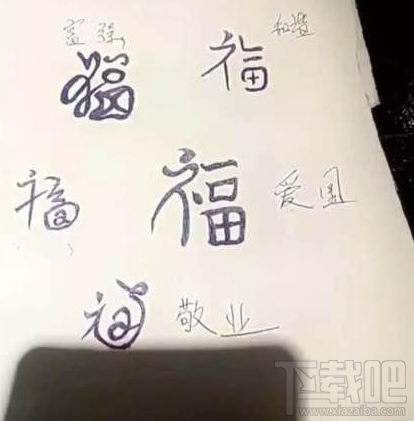 富强 和谐
福 福
福 福 爱国
福 敬业
下载吧
www.xiazaiba.com